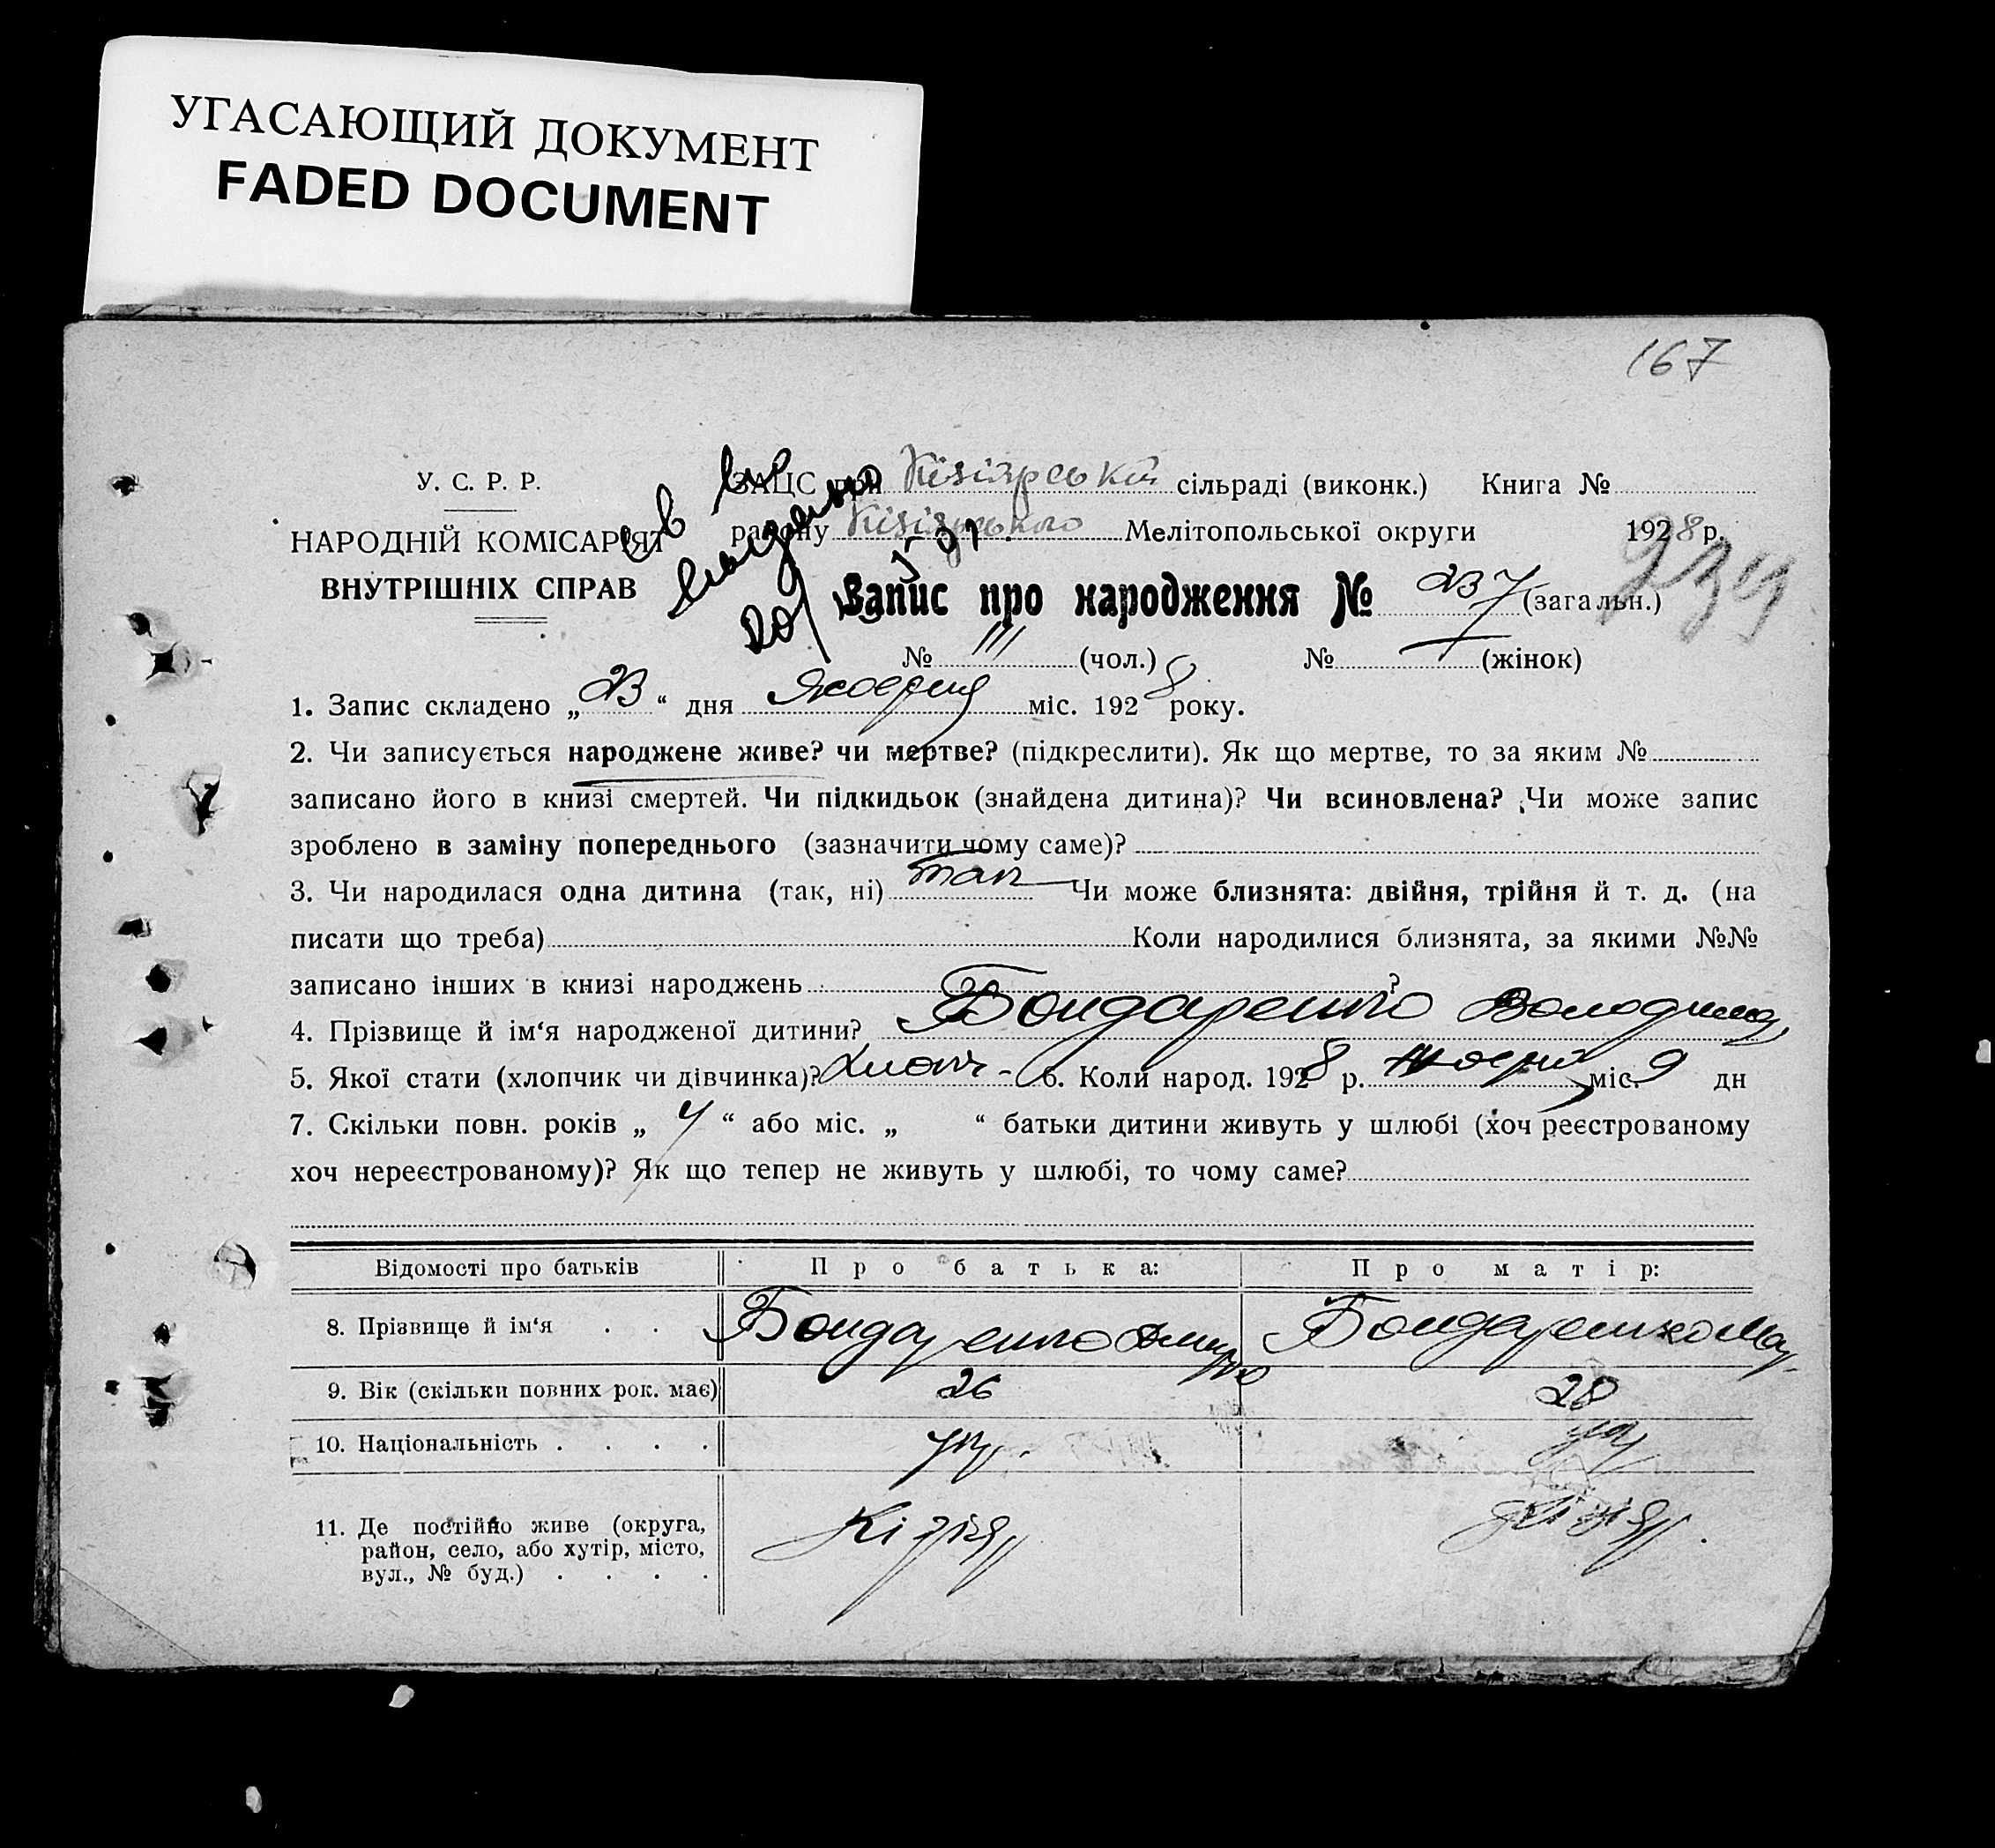 УГАСАЮЩИЙ ДОКУМЕНТ
FADED DOCUMENT
167
У. С. Р. Р.
НАРОДНІЙ КОМІСАРІЯТ
ВНУТРІШНІХ СПРАВ
ЗАЦС при Кізіярській сільраді (виконк.) Книга №
району Кізіярського Мелітопольської округи 1928 р.
Запис про народження № 237 (загальн.)
234
№ 111 (чол.) № (жінок)
1. Запис складено „23“ дня міс. 1928 року.
2. Чи записується народжене живе? чи мертве? (підкреслити). Як що мертве, то за яким №
записано його в книзі смертей. Чи підкидьок (знайдена дитина)? Чи всиновлена? Чи може запис
зроблено в заміну попереднього (зазначити чому саме)?
3. Чи народилася одна дитина (так, ні) так Чи може близнята: двійня, трійня й т. д. (на
писати що треба) Коли народилися близнята, за якими №№
записано інших в книзі народжень ?
4. Прізвище й ім‘я народженої дитини? Бондаренко Володимир
5. Якої стати (хлопчик чи дівчинка)? Хлопч- 6. Коли народ. 1928 р. міс. 9 дн
7. Скільки повн. років „ 4 “ або міс. „ “ батьки дитини живуть у шлюбі (хоч реєстрованому
хоч нереєстрованому)? Як що тепер не живуть у шлюбі, то чому саме?
Відомості про батьків Про батька: Про матір:
8. Прізвище й ім‘я . . . Бондаренко Дмитро Бондаренко Мар.
9. Вік (скільки повних рок. має) 26 28
10. Національність . . . . . укр. укр
11. Де постійно живе (округа,
район, село, або хутір, місто,
вул., № буд.) . . . .
Кізіяр Кізіяр.